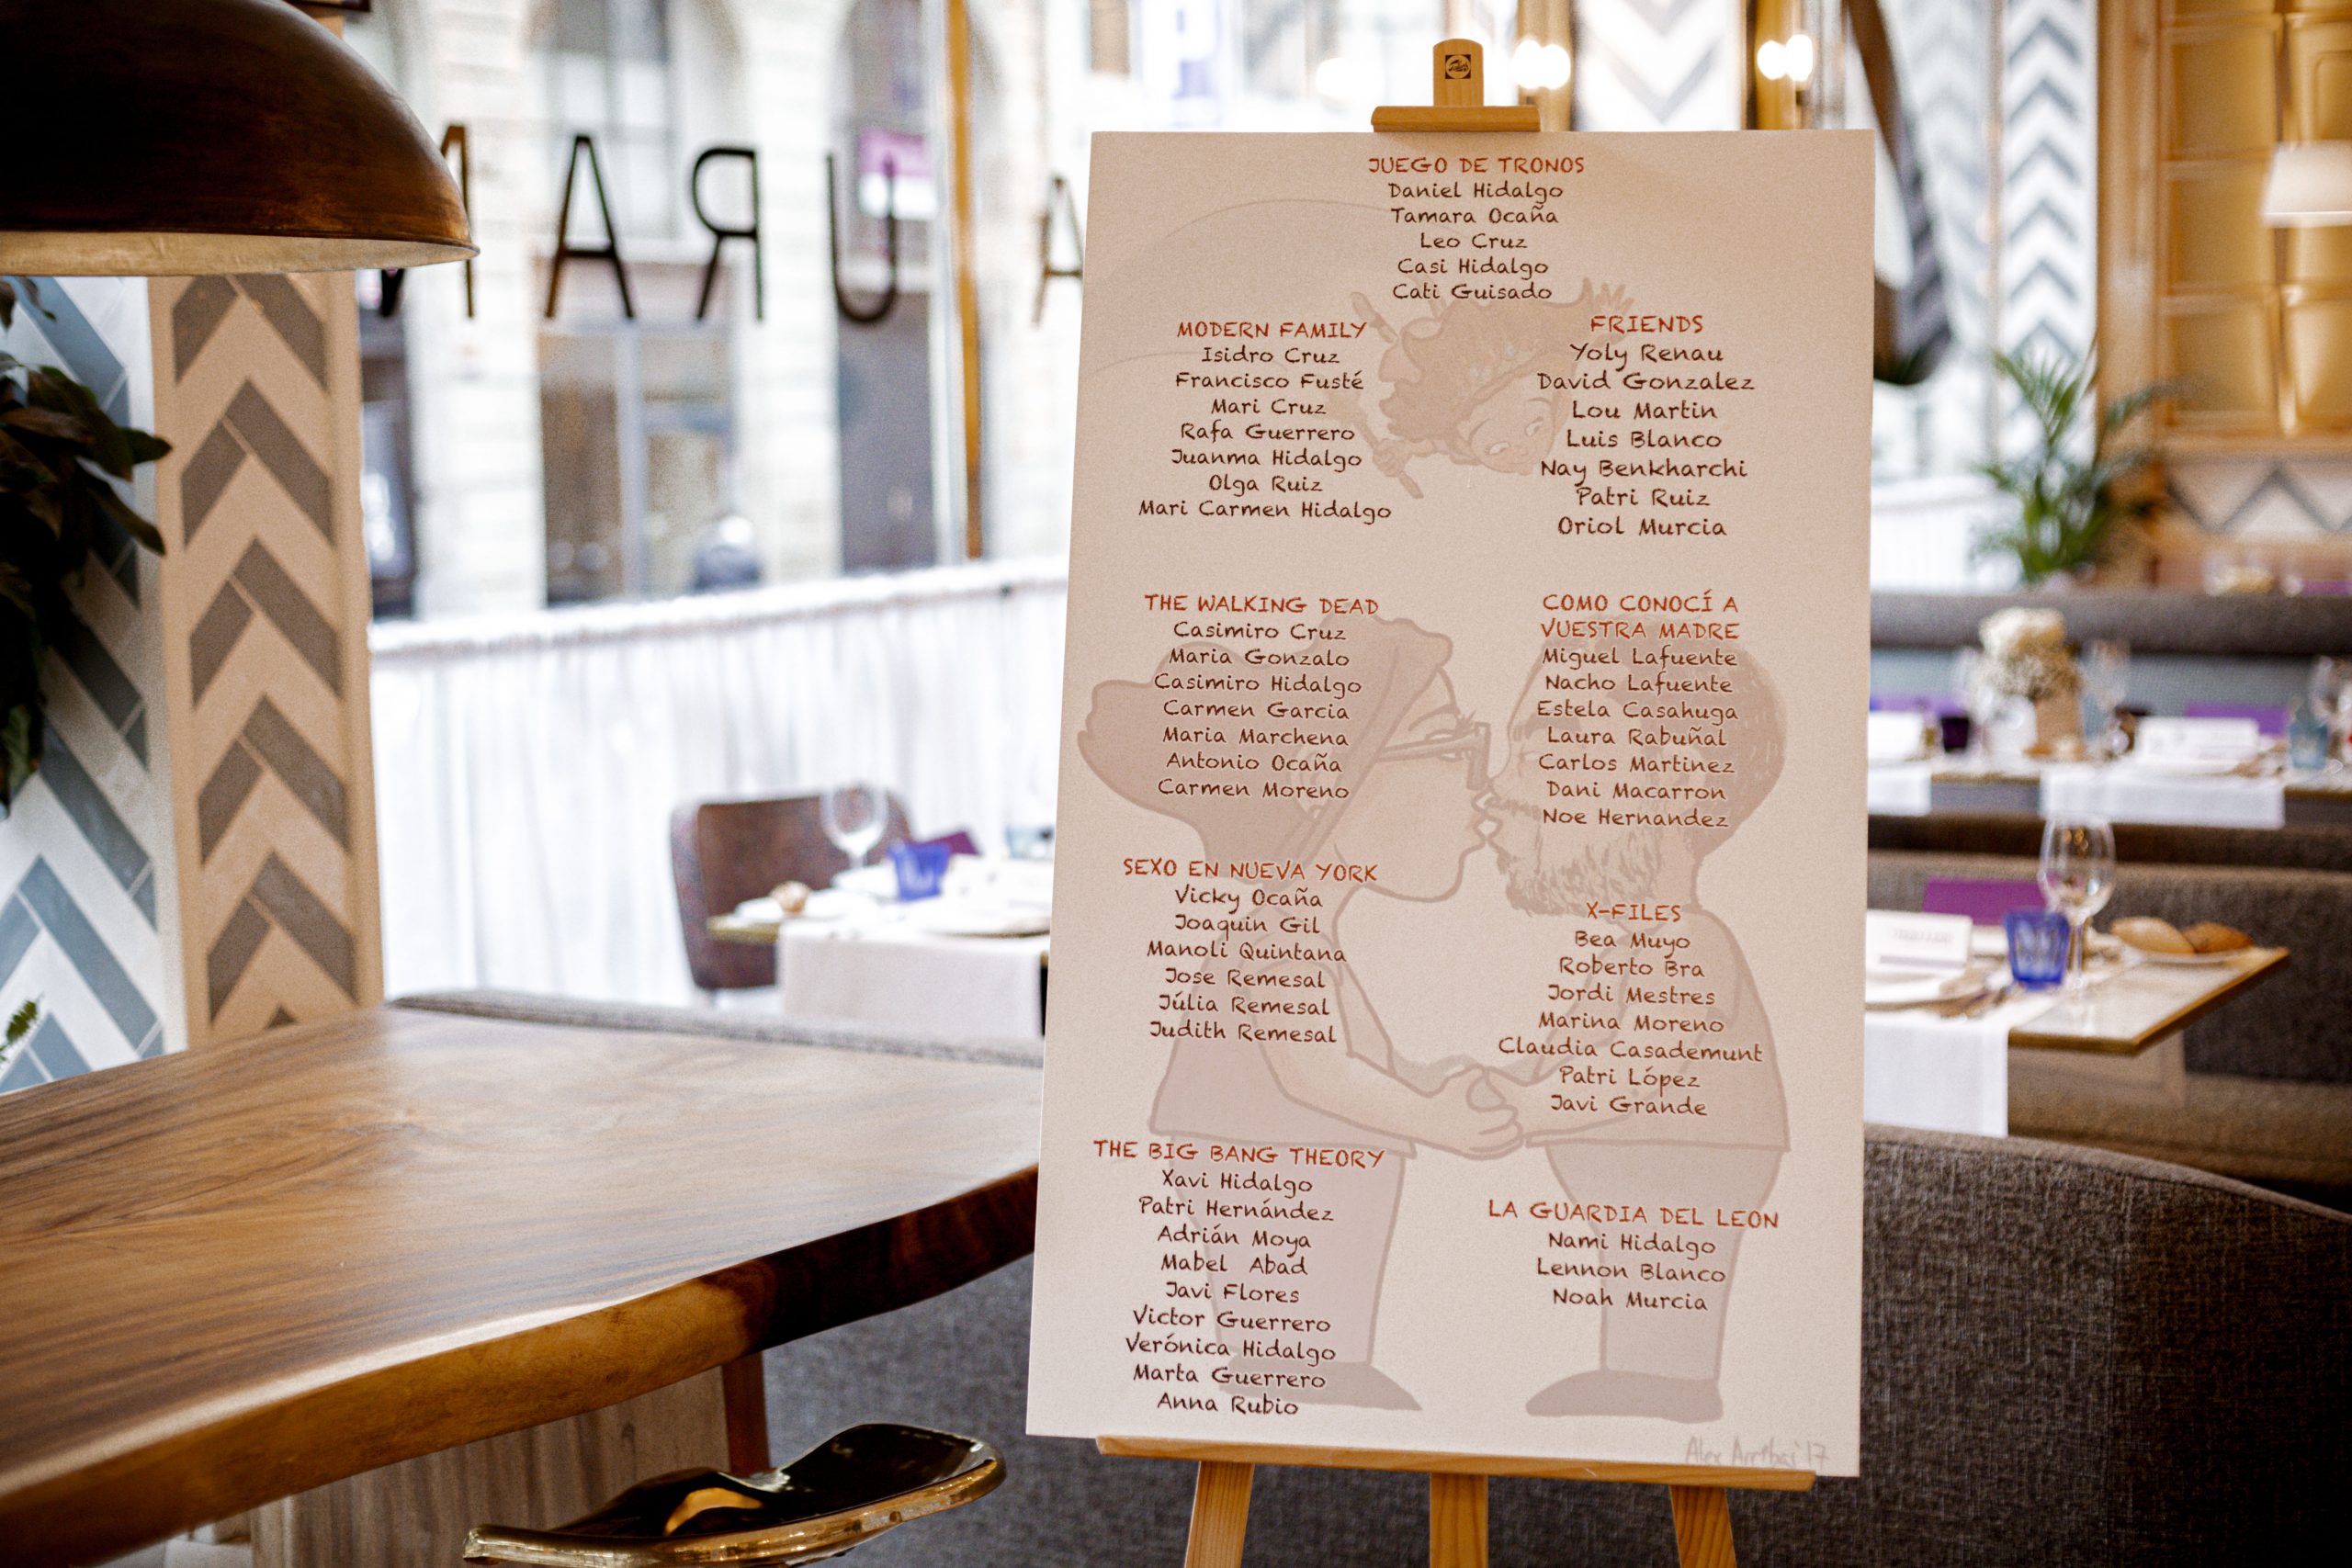 JUEGO DE TRONOS
Daniel Hidalgo
Tamara Ocaña
Leo Cruz
Casi Hidalgo
Cati Guisado
MODERN FAMILY
Isidro Cruz
Francisco Fusté
Mari Cruz
Rafa Guerrero
Juanma Hidalgo
Olga Ruiz
Mari Carmen Hidalgo
FRIENDS
Yoly Renau
David Gonzalez
Lou Martin
Luis Blanco
Nay Benkharchi
Patri Ruiz
Oriol Murcia
THE WALKING DEAD
Casimiro Cruz
Maria Gonzalo
Casimiro Hidalgo
Carmen Garcia
Maria Marchena
Antonio Ocaña
Carmen Moreno
COMO CONOCÍ A
VUESTRA MADRE
Miguel Lafuente
Nacho Lafuente
Estela Casahuga
Laura Rabuñal
Carlos Martinez
Dani Macarron
Noe Hernandez
SEXO EN NUEVA YORK
Vicky Ocaña
Joaquin Gil
Manoli Quintana
Jose Remesal
Júlia Remesal
Judith Remesal
X-FILES
Bea Muyo
Roberto Bra
Jordi Mestres
Marina Moreno
Claudia Casademunt
Patri López
Javi Grande
THE BIG BANG THEORY
Xavi Hidalgo
Patri Hernández
Adrián Moya
Mabel Abad
Javi Flores
Victor Guerrero
Verónica Hidalgo
Marta Guerrero
Anna Rubio
LA GUARDIA DEL LEON
Nami Hidalgo
Lennon Blanco
Noah Murcia
Alex Arribas '17